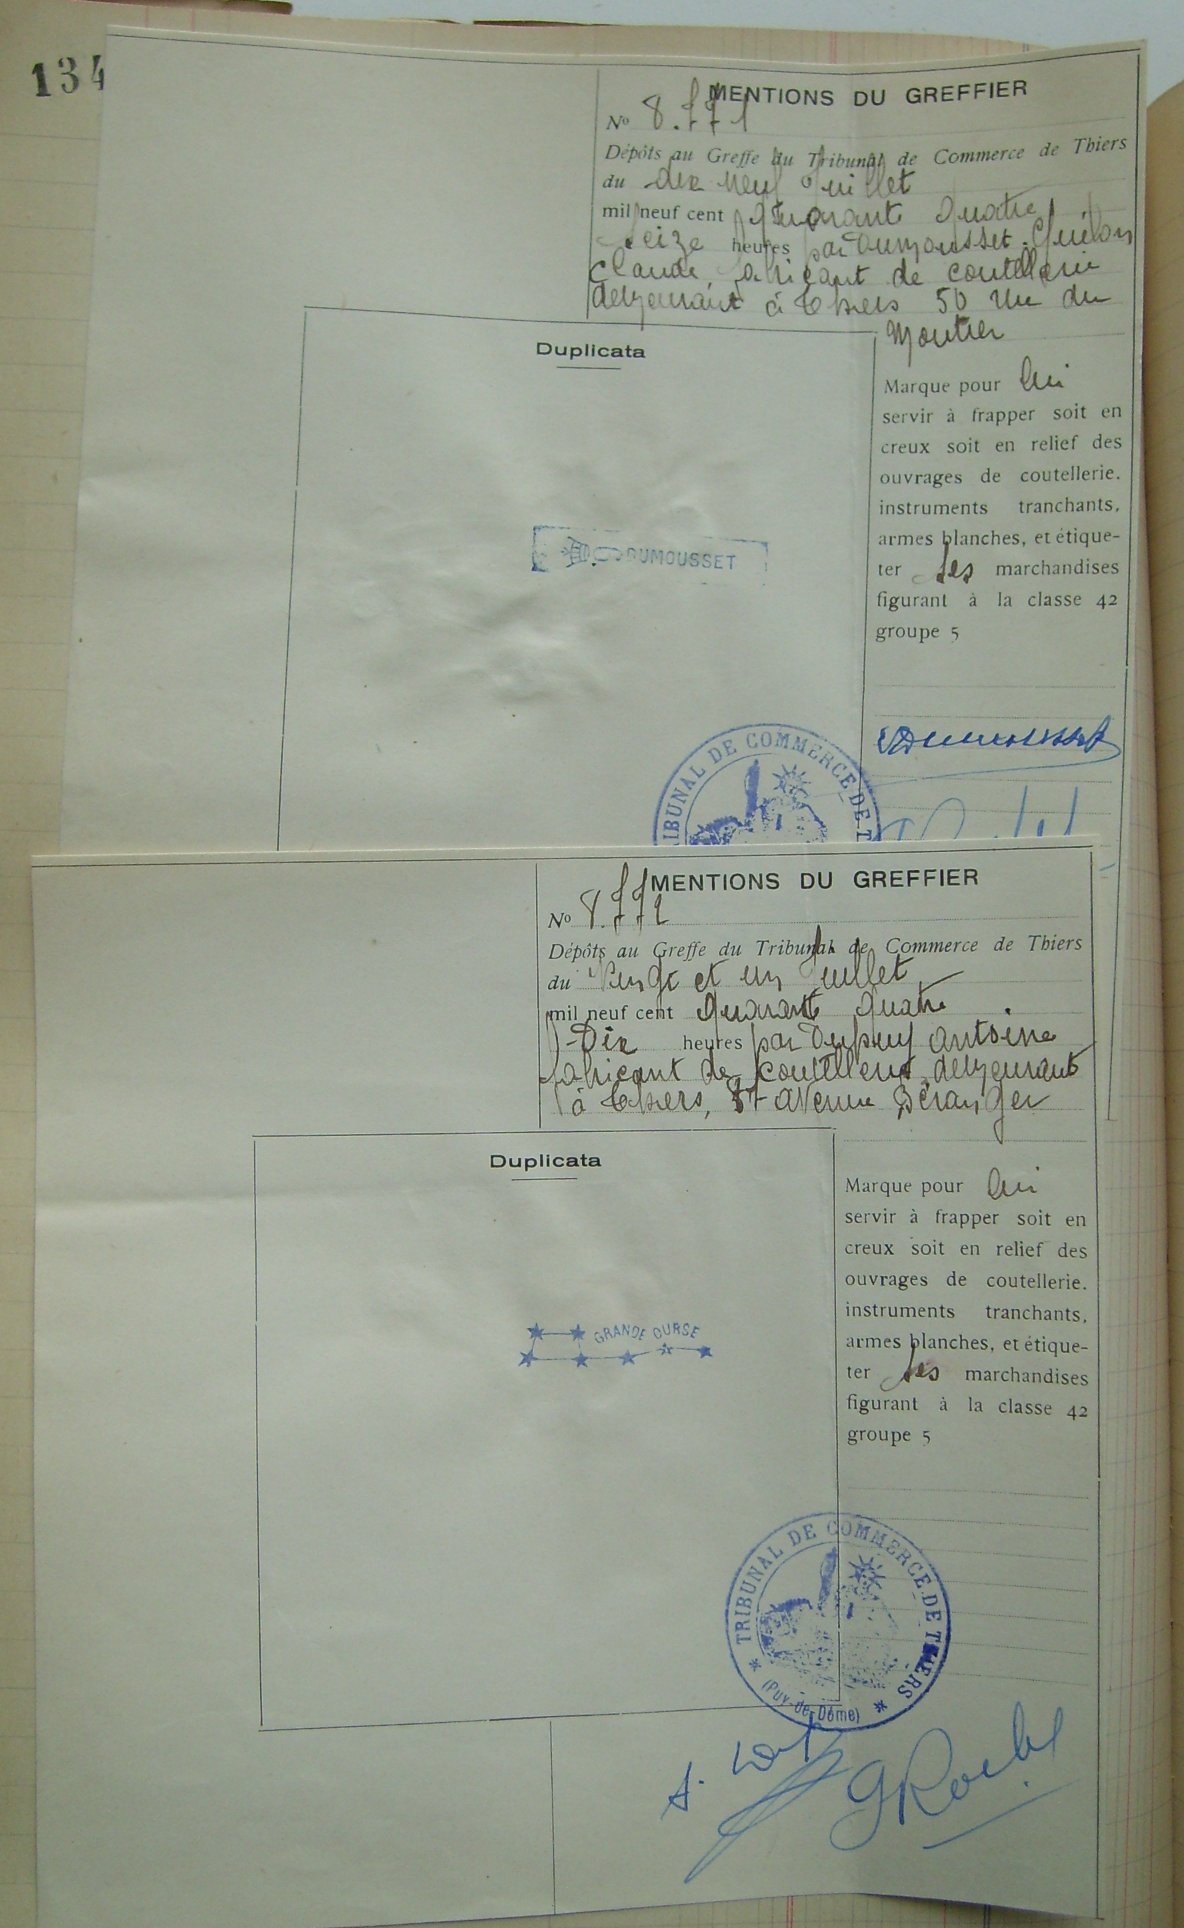 134
MENTIONS DU GREFFIER
No 8.771
Dépôts au Greffe du Tribunal de Commerce de Thiers
du dix neuf Juillet
mil neuf cent quarante quatre
seize heures par Dumousset
Claude, fabricant de coutellerie
demeurant à Thiers 50 rue du
Moutier
Duplicata
Marque pour lui
servir à frapper soit en
creux soit en relief des
ouvrages de coutellerie.
instruments tranchants,
armes blanches, et étique-
ter ses marchandises
figurant à la classe 42
groupe 5
DUMOUSSET
Dumousset
TRIBUNAL DE COMMERCE DE T
MENTIONS DU GREFFIER
No 8.772
Dépôts au Greffe du Tribunal de Commerce de Thiers
du Vingt et un Juillet
mil neuf cent quarante quatre
Dix heures par Dupuy Antoine
fabricant de coutellerie, demeurant
à Thiers, avenue Béranger
Duplicata
Marque pour lui
servir à frapper soit en
creux soit en relief des
ouvrages de coutellerie.
instruments tranchants,
armes blanches, et étique-
ter ses marchandises
figurant à la classe 42
groupe 5
GRANDE OURSE
TRIBUNAL DE COMMERCE DE THIERS
(Puy-de-Dôme)